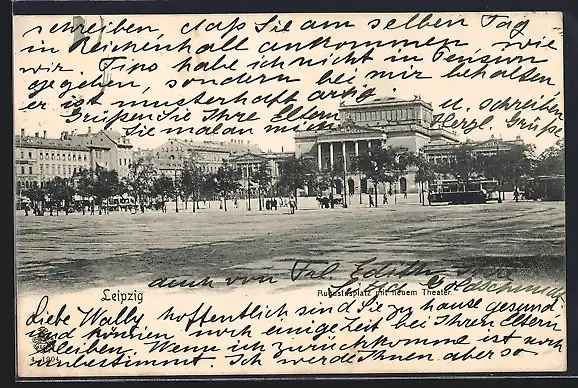 schreiben, daß Sie am selben Tag
in Reichenhall ankommen, wie
wir. Tino habe ich nicht in Pension
gegeben, sondern bei mir behalten
er ist musterhaft artig.
Grüßen Sie Ihre Eltern u. schreiben
Sie mal an mich Herzl. Grüße
auch von Frl. Edith Ihre
Goldschmidt
Leipzig
Augustusplatz mit neuem Theater.
Liebe Wally hoffentlich sind Sie zu hause gesund
und können noch einige Zeit bei Ihren Eltern
bleiben. Wenn ich zurückkomme ist noch
unbestimmt. Ich werde Ihnen aber so
1904